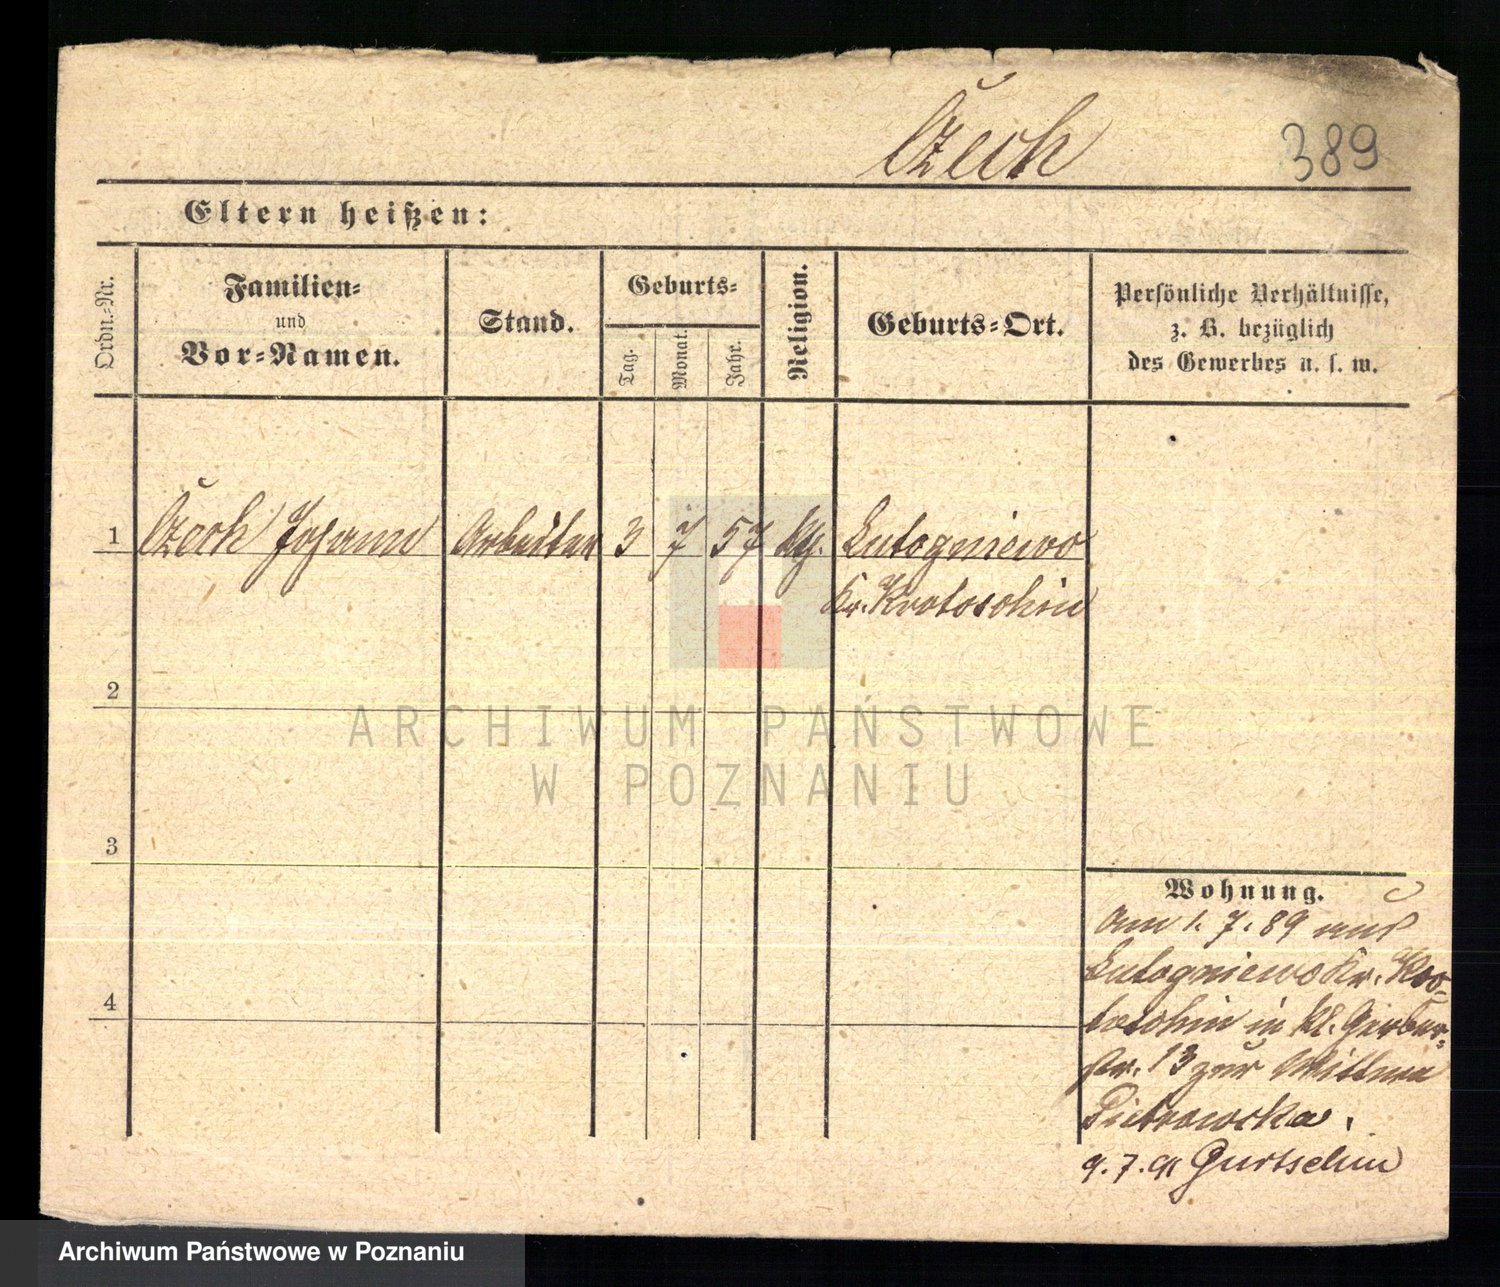 Czech
389
Eltern heißen:
Ordn.-Nr.
Familien-
und
Vor-Namen.
Stand.
Geburts-
Tag.
Monat.
Jahr.
Religion.
Geburts-Ort.
Persönliche Verhältnisse,
z. B. bezüglich
des Gewerbes u. s. w.
1 Czech Johann Arbeiter 3 7 57 kth. Lutogniewo
Kr. Krotoschin
2
3
4
Wohnung.
Am 1. 7. 89 aus
Lutogniewo Kr. Kro-
toschin in kl. Gerber-
str. 13 zur Wittwe
Pietrowska.
9. 7. 91 Gurtschin
ARCHIWUM PAŃSTWOWE
W POZNANIU
Archiwum Państwowe w Poznaniu